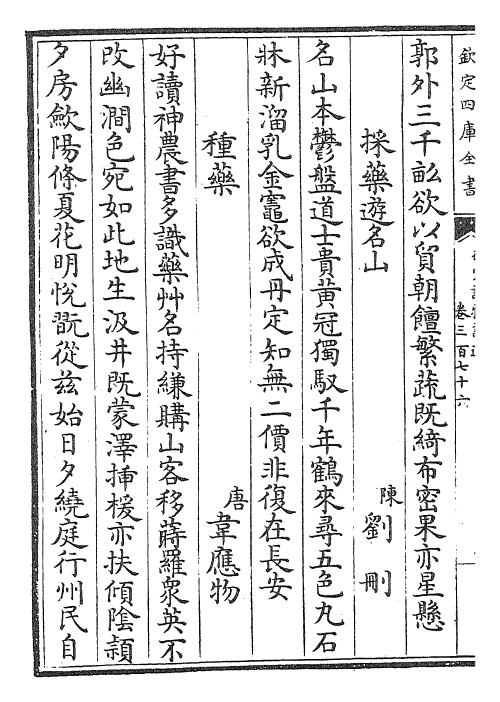 欽定四庫全書
卷三百七十六
郭外三千畆欲以貿朝饘繁蔬既綺布密果亦星懸
採藥遊名山
陳 劉刪
名山本鬱盤道士貴黄冠獨馭千年鶴來尋五色丸石
牀新溜乳金竈欲成丹定知無二價非復在長安
種藥
唐 韋應物
好讀神農書多識藥艸名持縑購山客移蒔羅衆英不
改幽澗色宛如此地生汲井既蒙澤揷楥亦扶傾陰頴
夕房歛陽條夏花明悅翫從兹始日夕繞庭行州民自